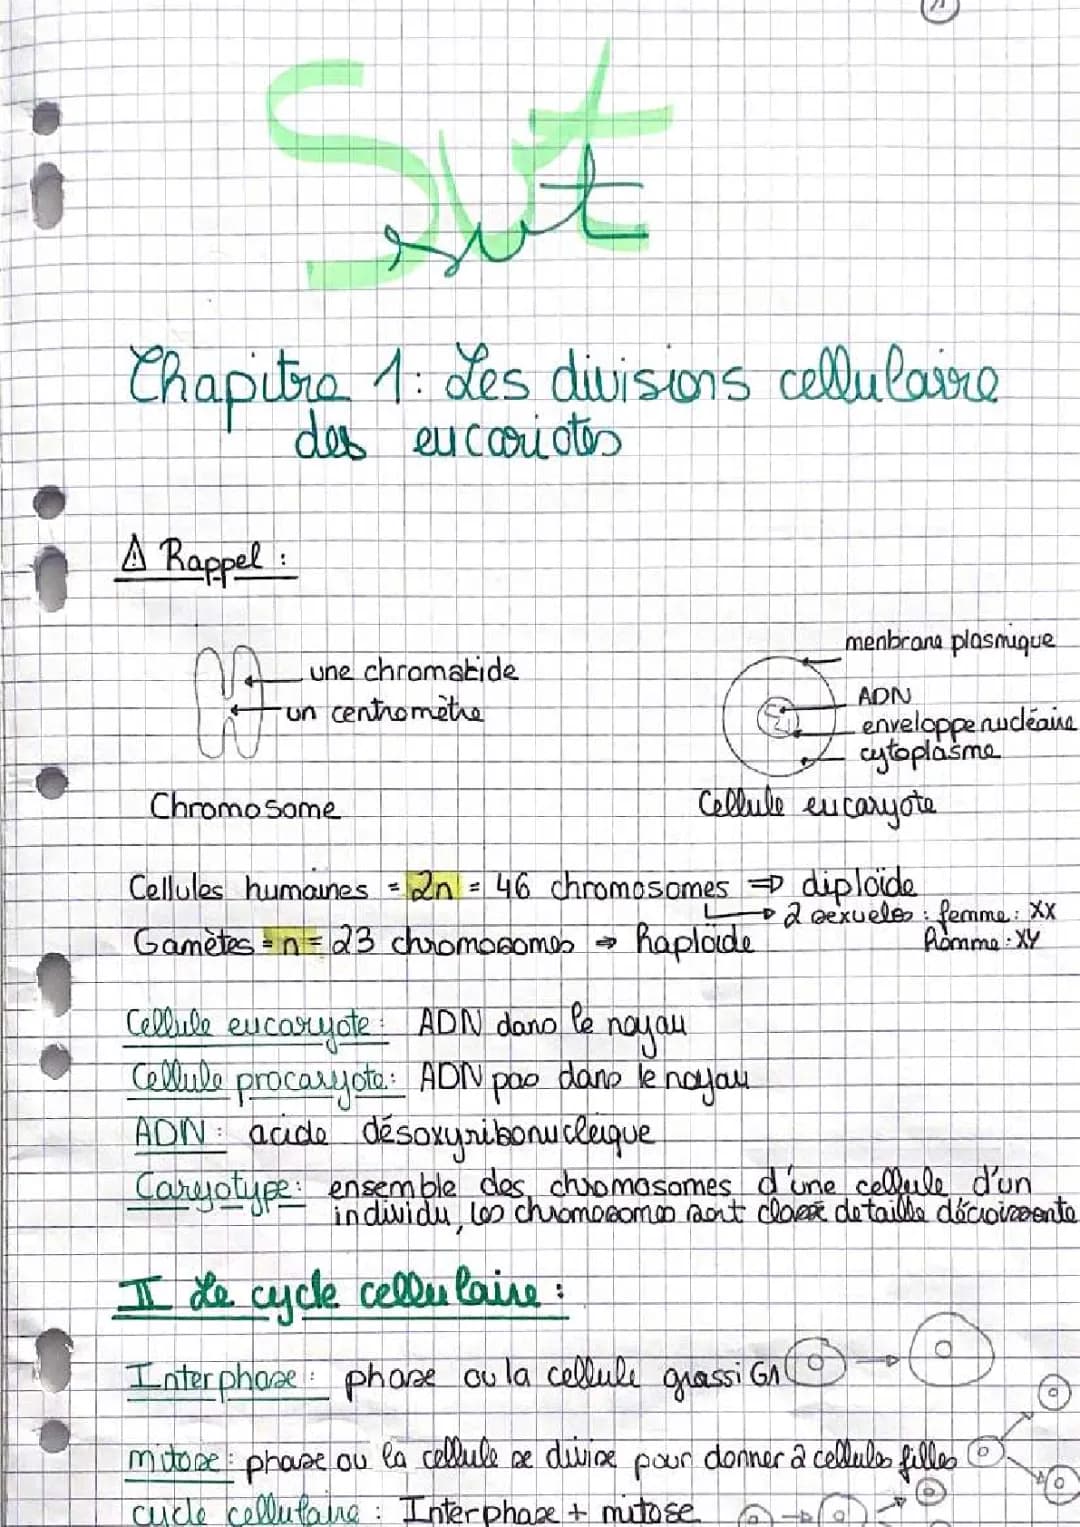 Svt
svt
Chapitre 1: Les divisions cellulaire
des eucariotes
⚠ Rappel :
une chromatide
un centromètre
Chromosome
menbrane plasmique
ADN
enveloppe nucléaire
cytoplasme
Cellule eucaryote
Cellules humaines = 2n = 46 chromosomes ⇒ diploïde
↳ 2 sexueles : femme : XX
homme : XY
Gamètes = n = 23 chromosomes → haploïde
Cellule eucaryote : ADN dans le noyau
Cellule procaryote : ADN pas dans le noyau
ADN : acide désoxyribonucleique
Caryotype : ensemble des chromosomes d'une cellule d'un
individu, les chromosomes sont classé de taille décroissante
II Le cycle cellulaire :
Interphase : phase ou la cellule grassi G1
mitose : phase ou la cellule se divise pour donner 2 cellules filles
cycle cellulaire : Interphase + mitose